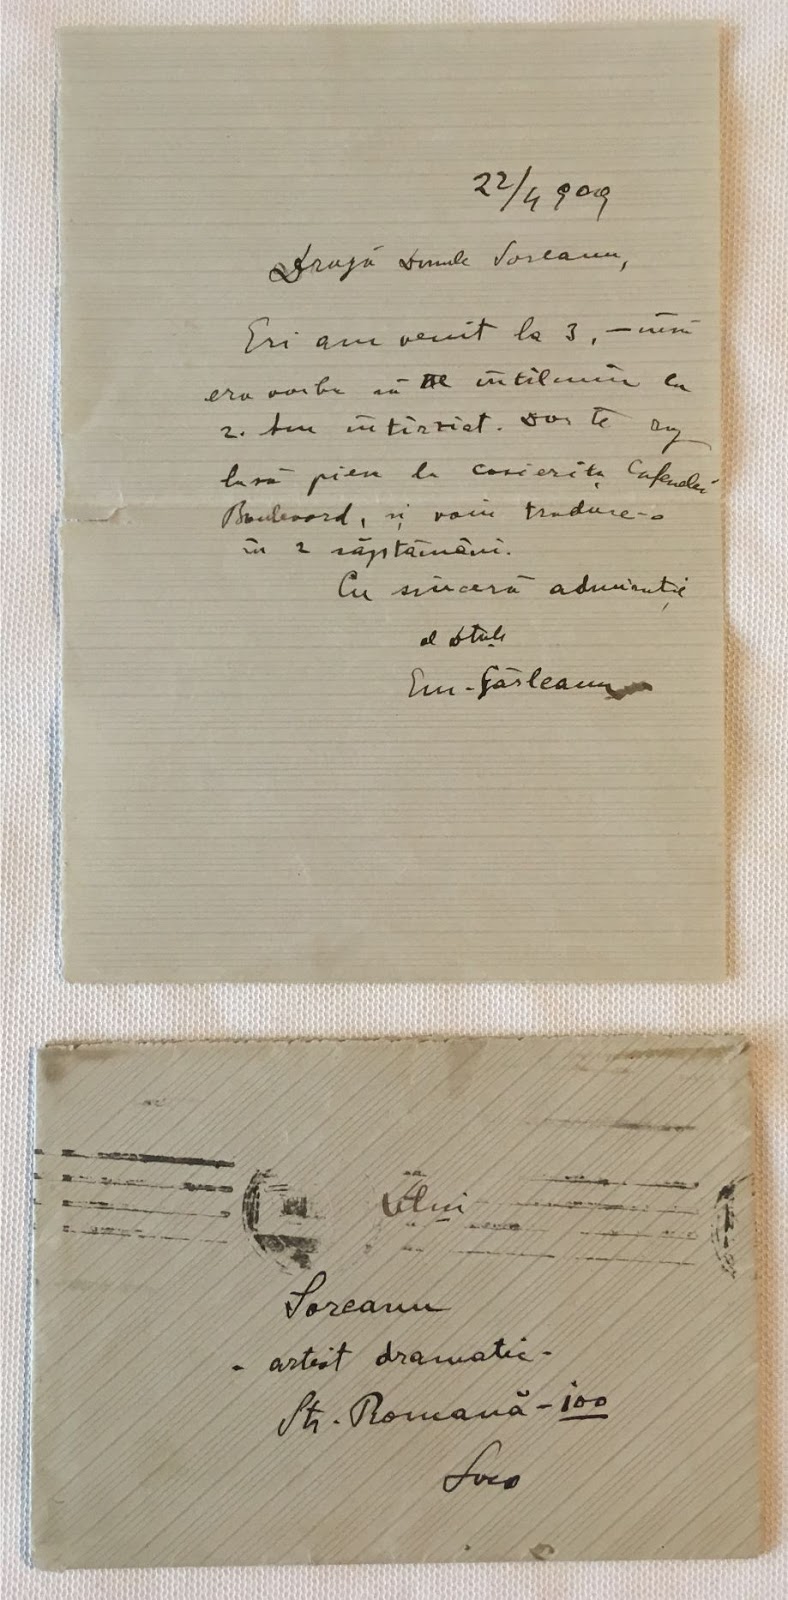 22/4 909
Dragă Domule Soreanu,
Eri am venit la 3, — însă
era vorba să ne intîlnim la
2. Am intîrziat. Dar te rog
lasă piesa la casierița Cafenelei
Boulevard, și voiu traduce-o
în 2 săptămâni.
Cu sinceră admirație
al Dtale
Em. Gârleanu
Dlui
Soreanu
- artist dramatic -
Str. Romană - 100
Loco